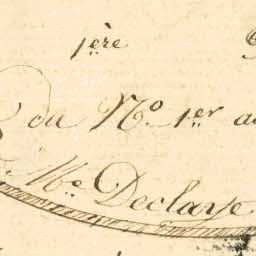 1ère
du No. 1er au
Me Declaye